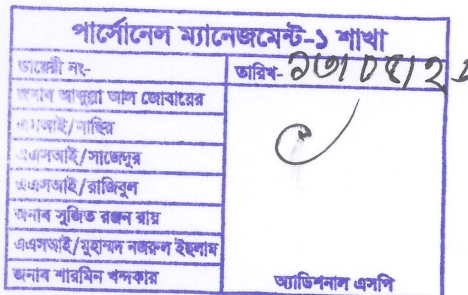 পার্সোনেল ম্যানেজমেন্ট-১ শাখা
ডায়েরী নং-
তারিখ-
জনাব আব্দুল্লা আল জোবায়ের
এসআই/নাছির
এএসআই/সাজেদুর
এএসআই/রাজিবুল
জনাব সুজিত রঞ্জন রায়
এএসআই/মুহাম্মদ নজরুল ইছলাম
জনাব শারমিন খন্দকার
অ্যাডিশনাল এসপি